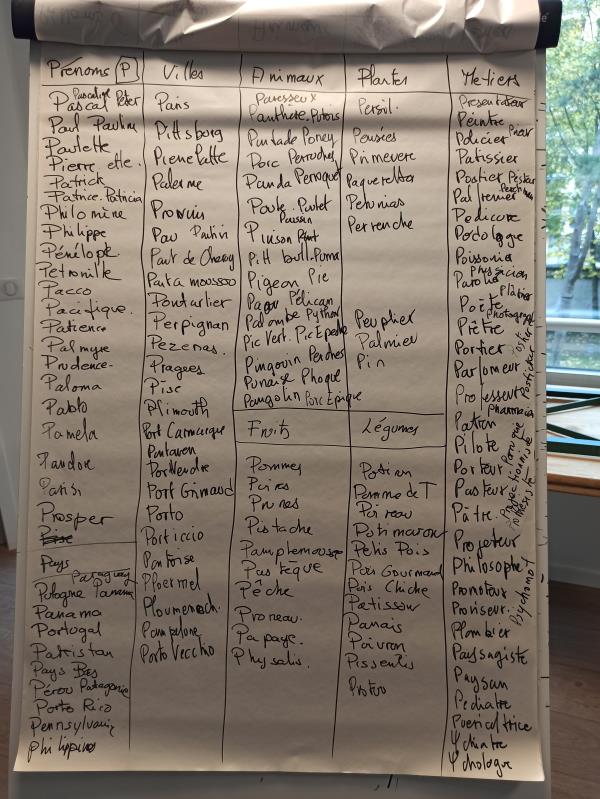 Prénoms P
Pascaline
Pascal Peter
Paul Pauline
Paulette
Pierre ette.
Patrick
Patrice. Patricia
Philomène
Philippe
Pénélope
Petronille
Pacco
Pacifique.
Patience
Palmyre
Prudence.
Paloma
Pablo
Pamela
Pandore
Paris
Prosper
Pays
Paraguay
Pologne Panama
Panama
Portugal
Pakistan
Pays Bas
Pérou Patagonie
Porto Rico
Pennsylvanie
Philippines
Villes
Paris
Pittsborg
Pierrelatte
Palerme
Provin
Pau Pantin
Pont de Cheruy
Punta moussoo
Pontarlier
Perpignan
Pezenas.
Pragues
Pise
Plimouth
Port Carmargue
Pontaven
Port Vendre
Port Grimaud
Porto
Porticcio
Pontoise
Ploermel
Ploumenach.
Pampelune
Porto Vecchio
Animaux
Paresseux
Panthère. Putois
Pintade Poney
Porc Perroches
Panda Perroquet
Poule. Poulet
Poussin
Pinson
Pitt bull. Puma
Pigeon Pie
Paon Pélican
Palombe Python
Pic Vert. Pic Epeiche
Pingouin Perches
Punaise Phoque
Pangolin Porc Epique
Fruits
Pommes
Poires
Prunes
Pistache
Pamplemousse
Pastèque
Pêche
Pruneau.
Papaye.
Physalis.
Plantes
Persil.
Pensées
Primevere
Paquerettes
Petunias
Pervenche
Peuplier
Palmier
Pin
Légumes
Potiron
Pomme de T
Poireau
Potimaron
Petis Pois
Pois Gourmand
Pois Chiche
Patisson
Panais
Poivron
Pissenlis
Metiers
Presentateur
Peintre
Policier
Patissier
Postier
Pedicure
Podologue
Poissonie
Physicien
Parolier
Plâtrier
Poète
Photographe
Prêtre
Portier
Parfumeur
Professeur
Pharmacien
Patron
Pilote
Porteur
Pasteur
Pâtre.
Projeteur
Philosophe
Promoteur
Proviseur.
Plombier
Paysagiste
Paysan
Pediatre
Puericultrice
Ψchiatre
Ψchologue
Projectionniste
Psychomot